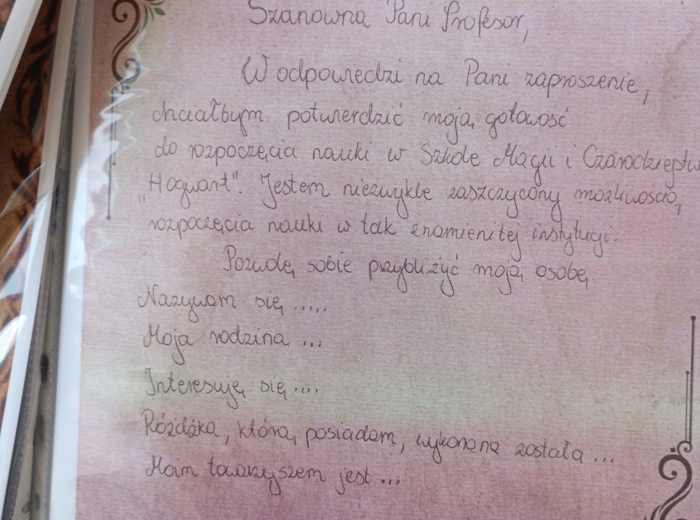 Szanowna Pani Profesor,
W odpowiedzi na Pani zaproszenie,
chciałbym potwierdzić moją gotowość
do rozpoczęcia nauki w Szkole Magii i Czarodziejstw
"Hogwart". Jestem niezwykle zaszczycony możliwością,
rozpoczęcia nauki w tak znamienitej instytucji.
Pozwolę sobie przybliżyć moją osobę.
Nazywam się .....
Moja rodzina ...
Interesuję się ....
Różdżka, którą posiadam, wykonana została ...
Mam towarzyszem jest ...